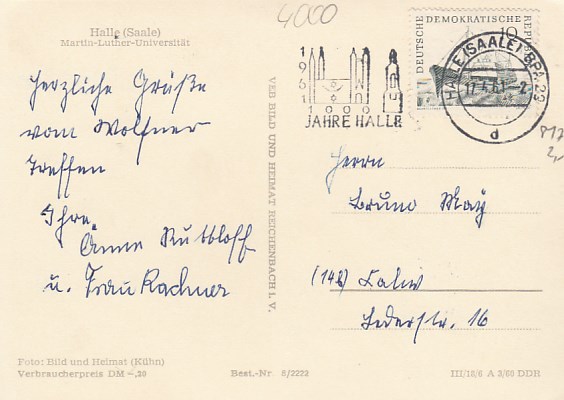 4000
Halle (Saale)
Martin-Luther-Universität
Herzliche Grüße
vom Wolfner
Treffen
Ihre
Änne
u. Frau
VEB BILD UND HEIMAT REICHENBACH I. V.
1961
1000
JAHRE HALLE
DEUTSCHE DEMOKRATISCHE REPUBLIK
10
HALLE (SAALE) BPA 23
17.4.61-2
d
Herrn
Bruno May
(14b) Calw
Lederstr. 16
Foto: Bild und Heimat (Kühn)
Verbraucherpreis DM -,20
Best.-Nr. 8/2222
III/18/6 A 3/60 DDR